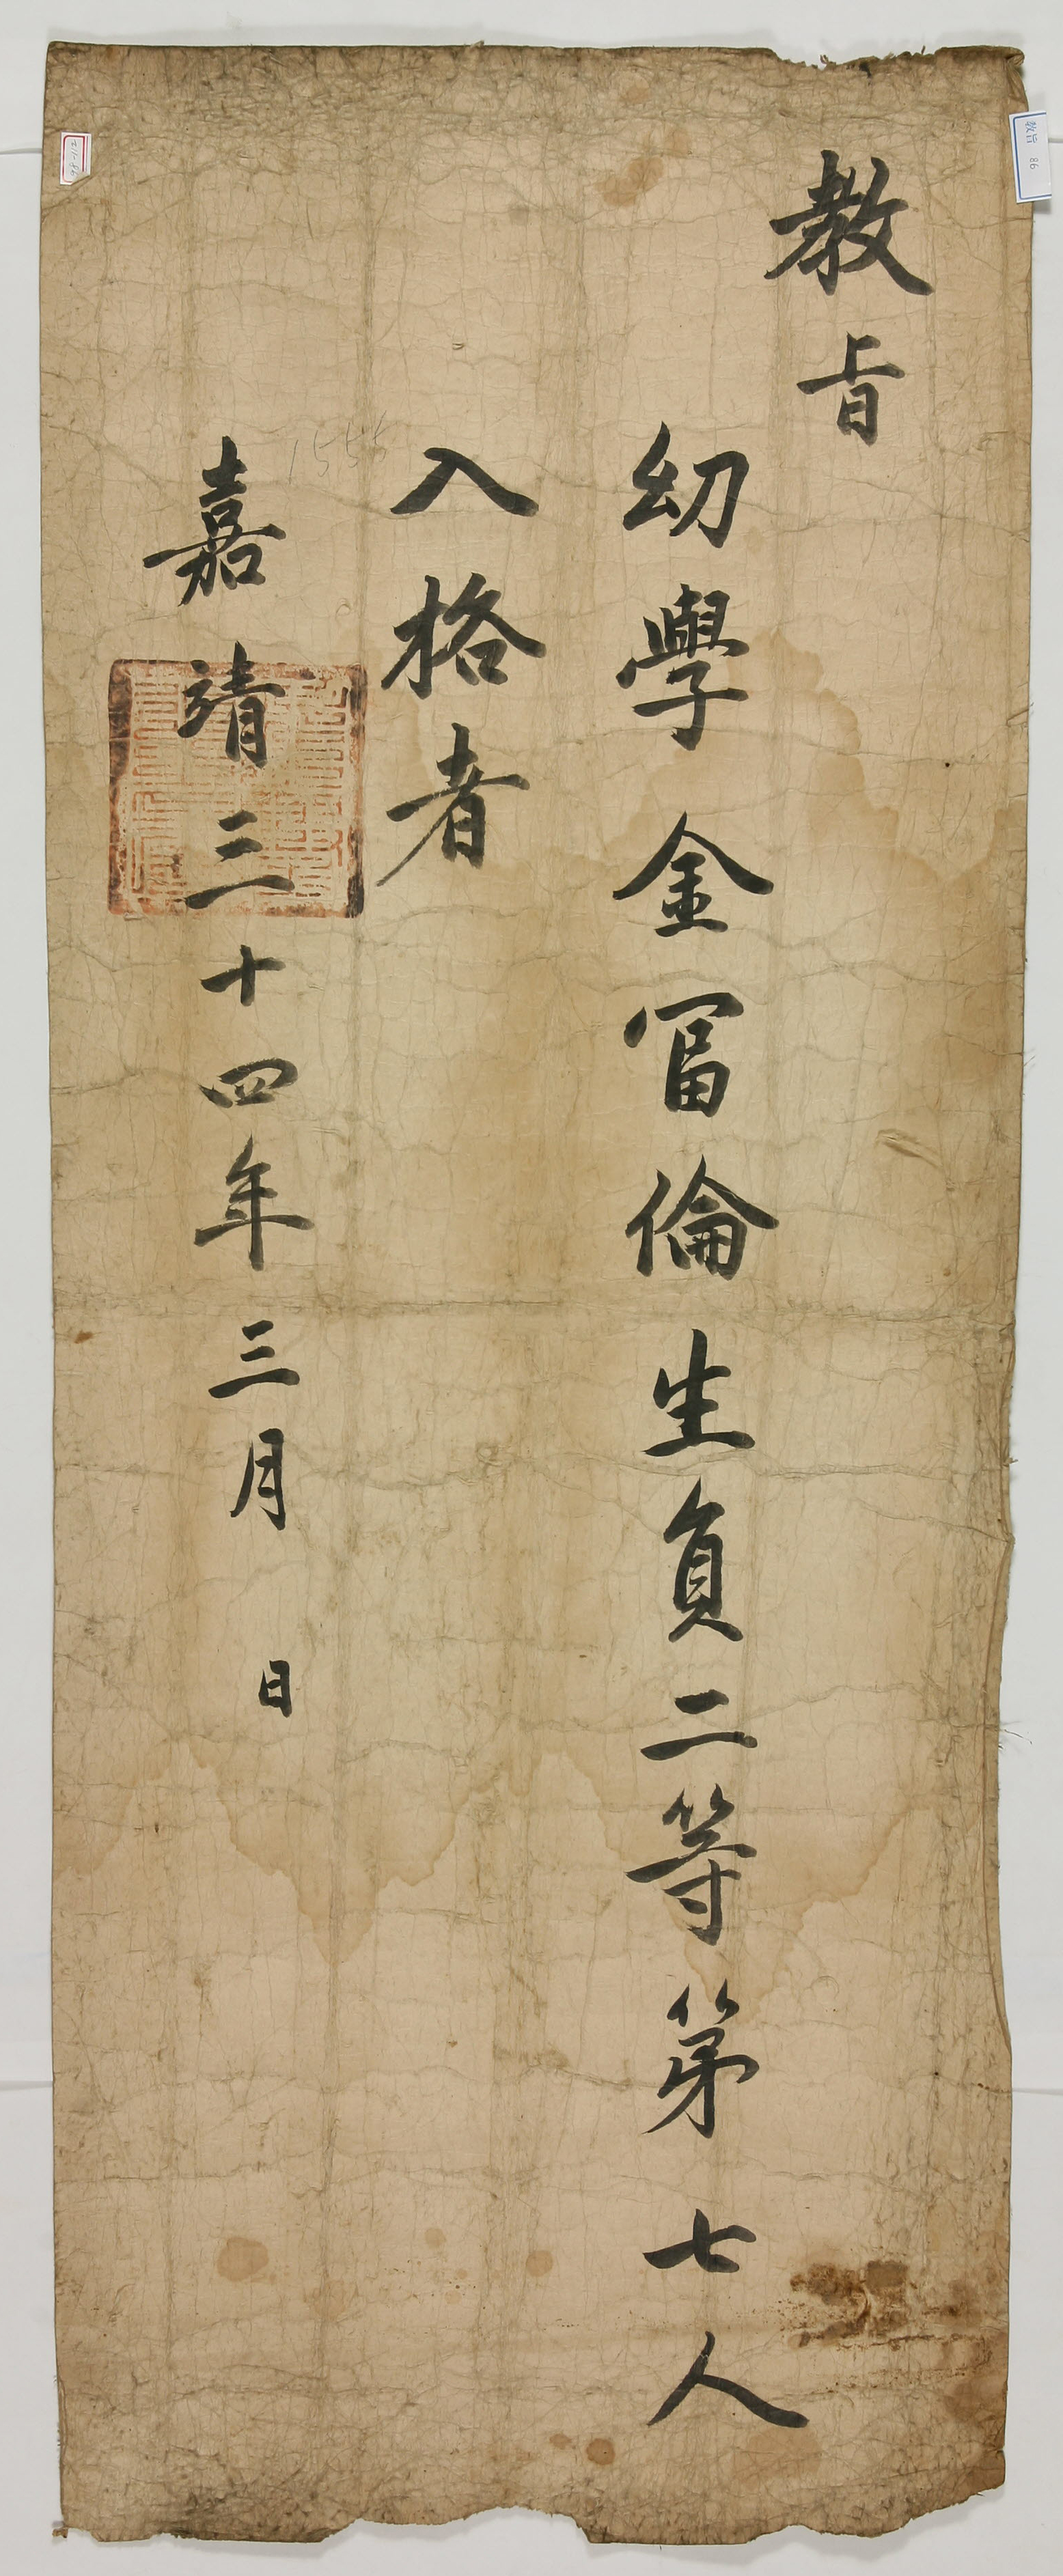 教旨
幼學金冨倫生員二等第七人
入格者
嘉靖三十四年三月 日
1555
教旨 86